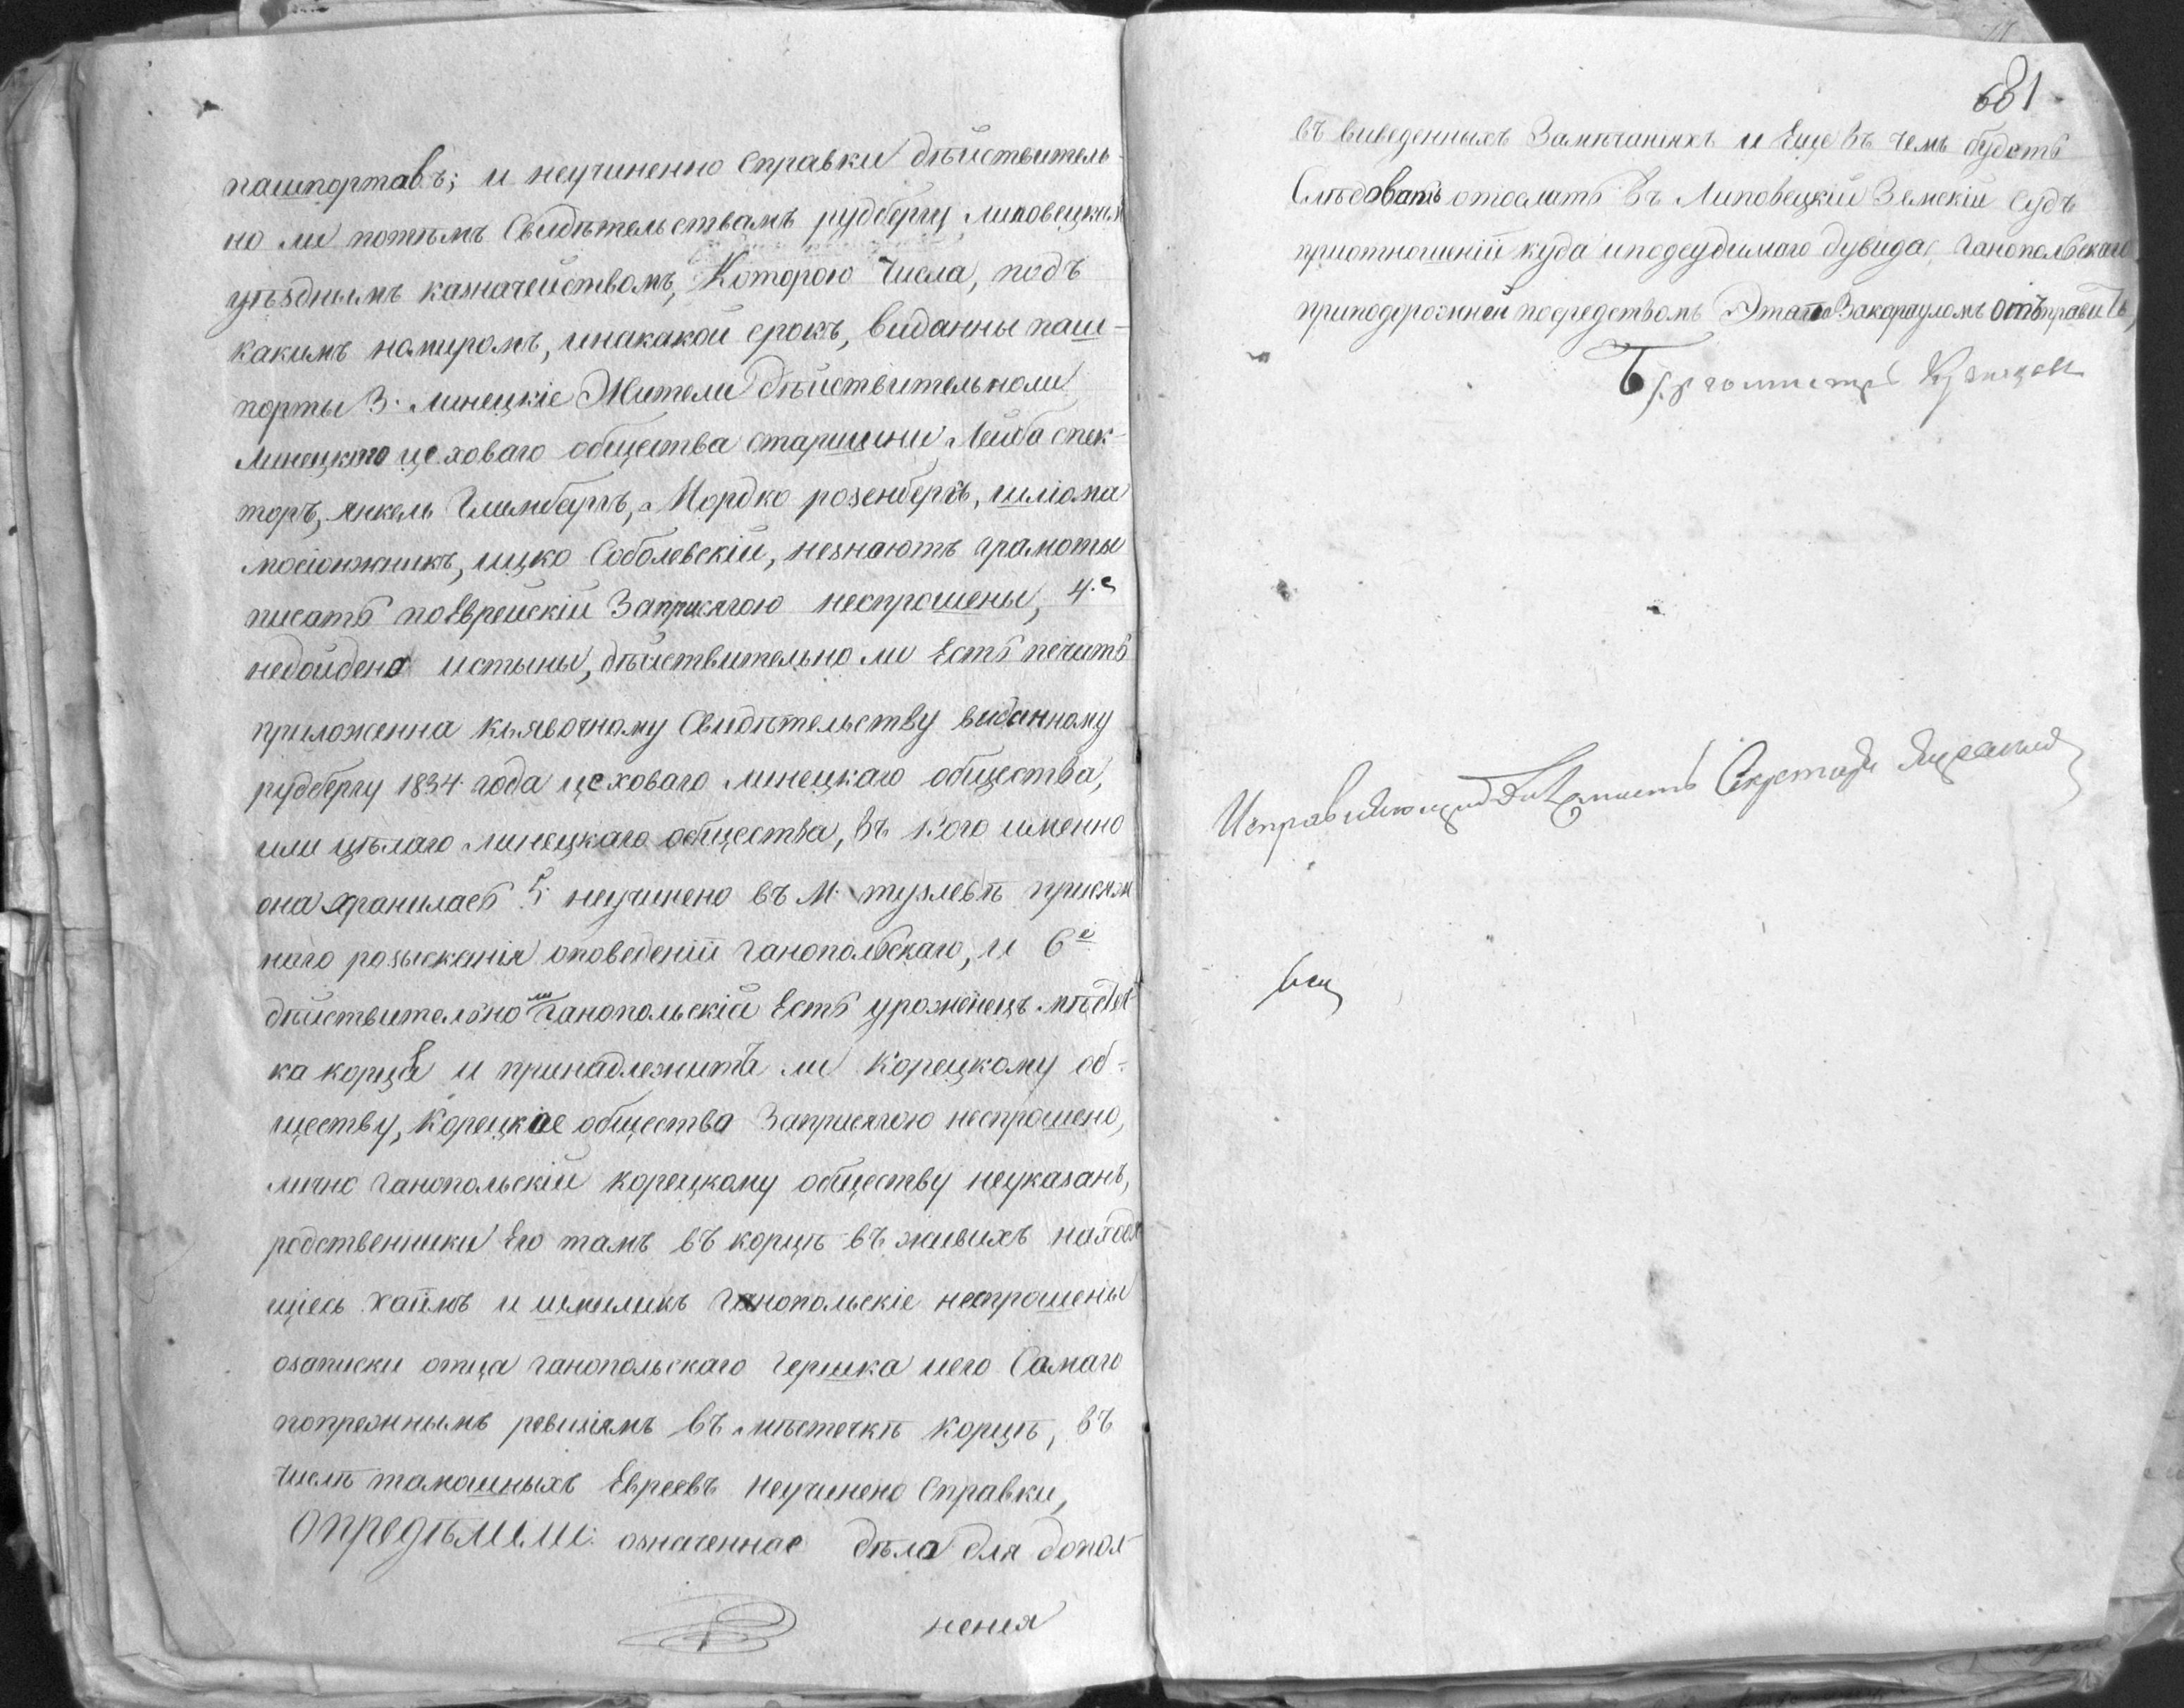 пашпортавъ; и неучиненно справки дѣйствитель-
но ли потѣмъ Свидѣтельствамъ рудбергу липовецкимъ
уѣзднымъ казначействомъ, Которого числа, подъ
какимъ номиромъ, инакакой срокъ, виданны паш-
порты 3. линецкіе Жители дѣйствительноли
линецкого цеховаго общества старшини Лейба спек-
торъ, янкель Глимбергъ, Мордко розенбергъ, шліома
мосіонжникъ, ицко Соболевскій, незнаютъ грамоты
писать поЕврейскій Заприсягою неспрошены, 4.е
недойдено истыны, дѣйствительно ли Есть печать
приложенна къявочному Свидѣтельству виданному
рудбергу 1834 года цеховаго линецкаго общества,
или цѣлаго линецкаго общества, въ кого именно
она хранилась 5. неучинено въ м. тузлевѣ присяж
наго розысканія оповеденіи ганопольскаго, и 6е
дѣйствительно ли Ганопольскій Есть уроженецъ мѣстеч-
ка корца и принадлежитъ ли Корецкому об-
ществу, Корецкое общество Заприсягою неспрошено,
лично ганопольскій корецкому обществу неуказанъ,
родственники Его тамъ въ корцѣ въ живихъ находя
щіесь хаимъ и шмиликъ ганопольскіе неспрошены
озаписки отца ганопольскаго Гершка иего Самаго
попрежнымъ ревизіямъ въ мѣстечкѣ корцѣ, въ
числѣ тамошныхъ Евреевъ неучинено Справки,
Опредѣлили: означенное дѣло для допол-
ненія
681
въ виведенныхъ Замѣчаніяхъ и Еще въ чемъ будетъ
Слѣдовать отослать въ Липовецкій Земскій Судъ
приотношеніи куда иподсудимаго дувида ганопольскаго
приподорожней посредствомъ Этапа Закарауломъ отъправить,
Бургомистръ Кузнецовъ
Исправляющій Должность Секретаря